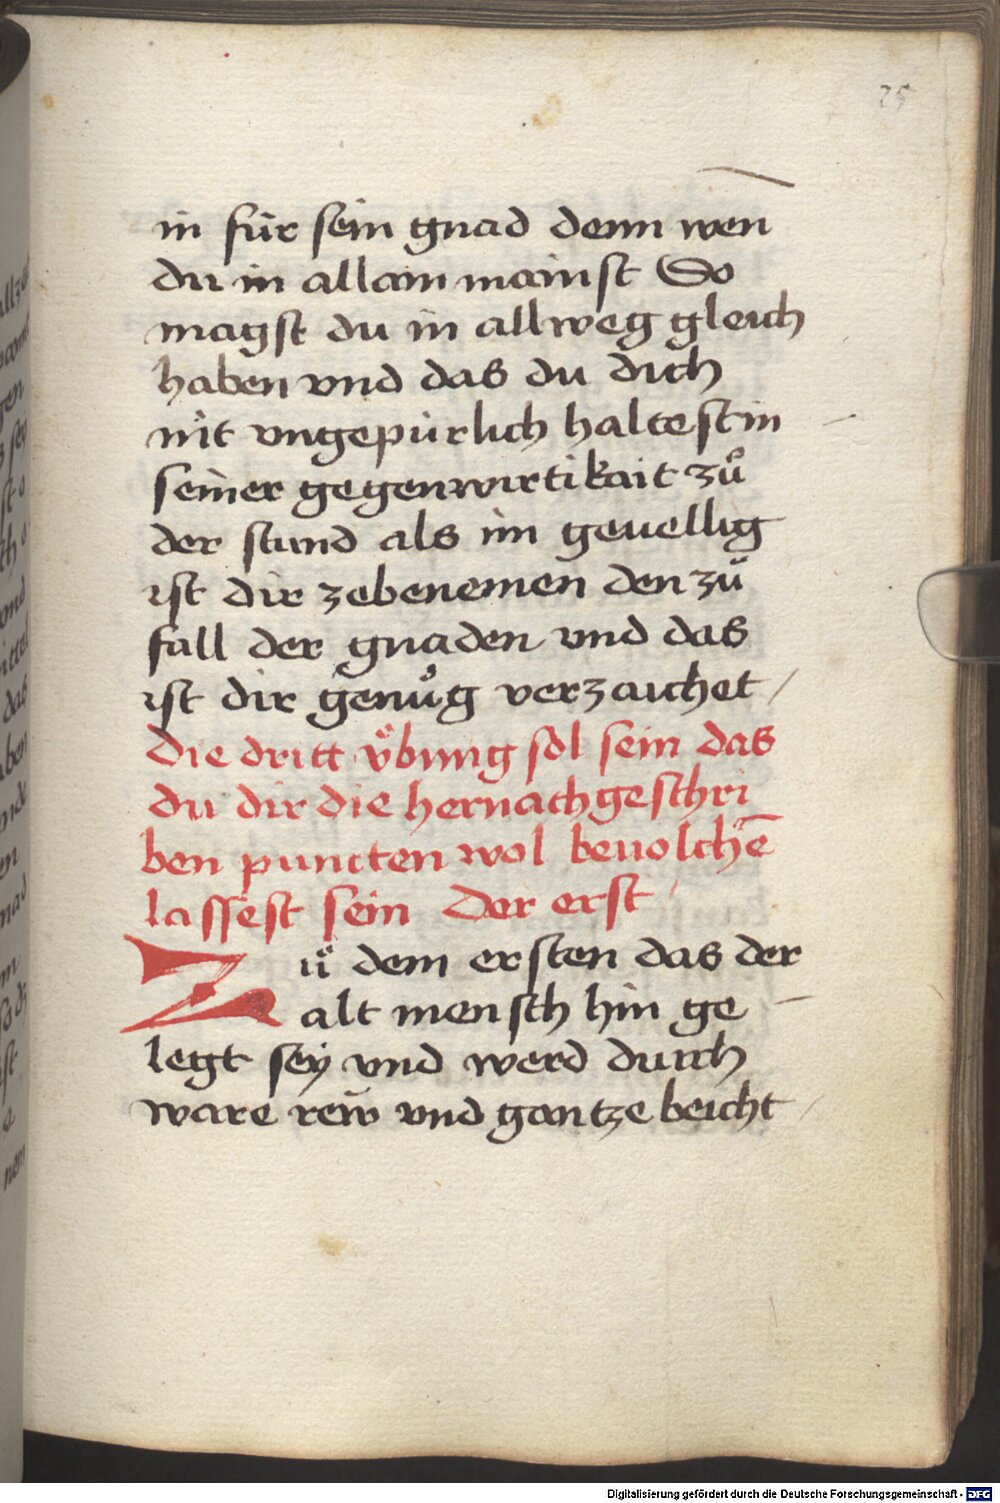 25
in für sein gnad denn wen
du in allain mainst So
magst du in allweg gleich
haben vnd das du dich
nit vngepürlich haltest in
seiner gegenwirtikait zů
der stund als im geuellig
ist dir zebenemen den zů
fall der gnaden vnd das
ist dir genůg verzaichet /
die dritt v̈bung sol sein das
du dir die hernachgeschri
ben puncten wol beuolchē
lassest sein Der erst /
Zů dem ersten das der
alt mensch hin ge
legt sey vnd werd durch
ware rew vnd gantze beicht /
Digitalisierung gefördert durch die Deutsche Forschungsgemeinschaft - DFG